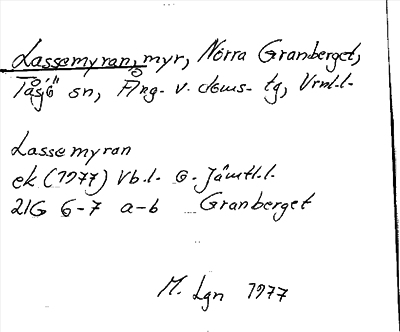 Lassemyran, myr, Norra Granberget,
Tåsjö sn, Ång. v. doms- tg, Vrnl.l.
Lassemyran
ek (1977) Vb.l. o. Jämtl.l.
21G 6-7 a-b Granberget
M. Lgn 1977